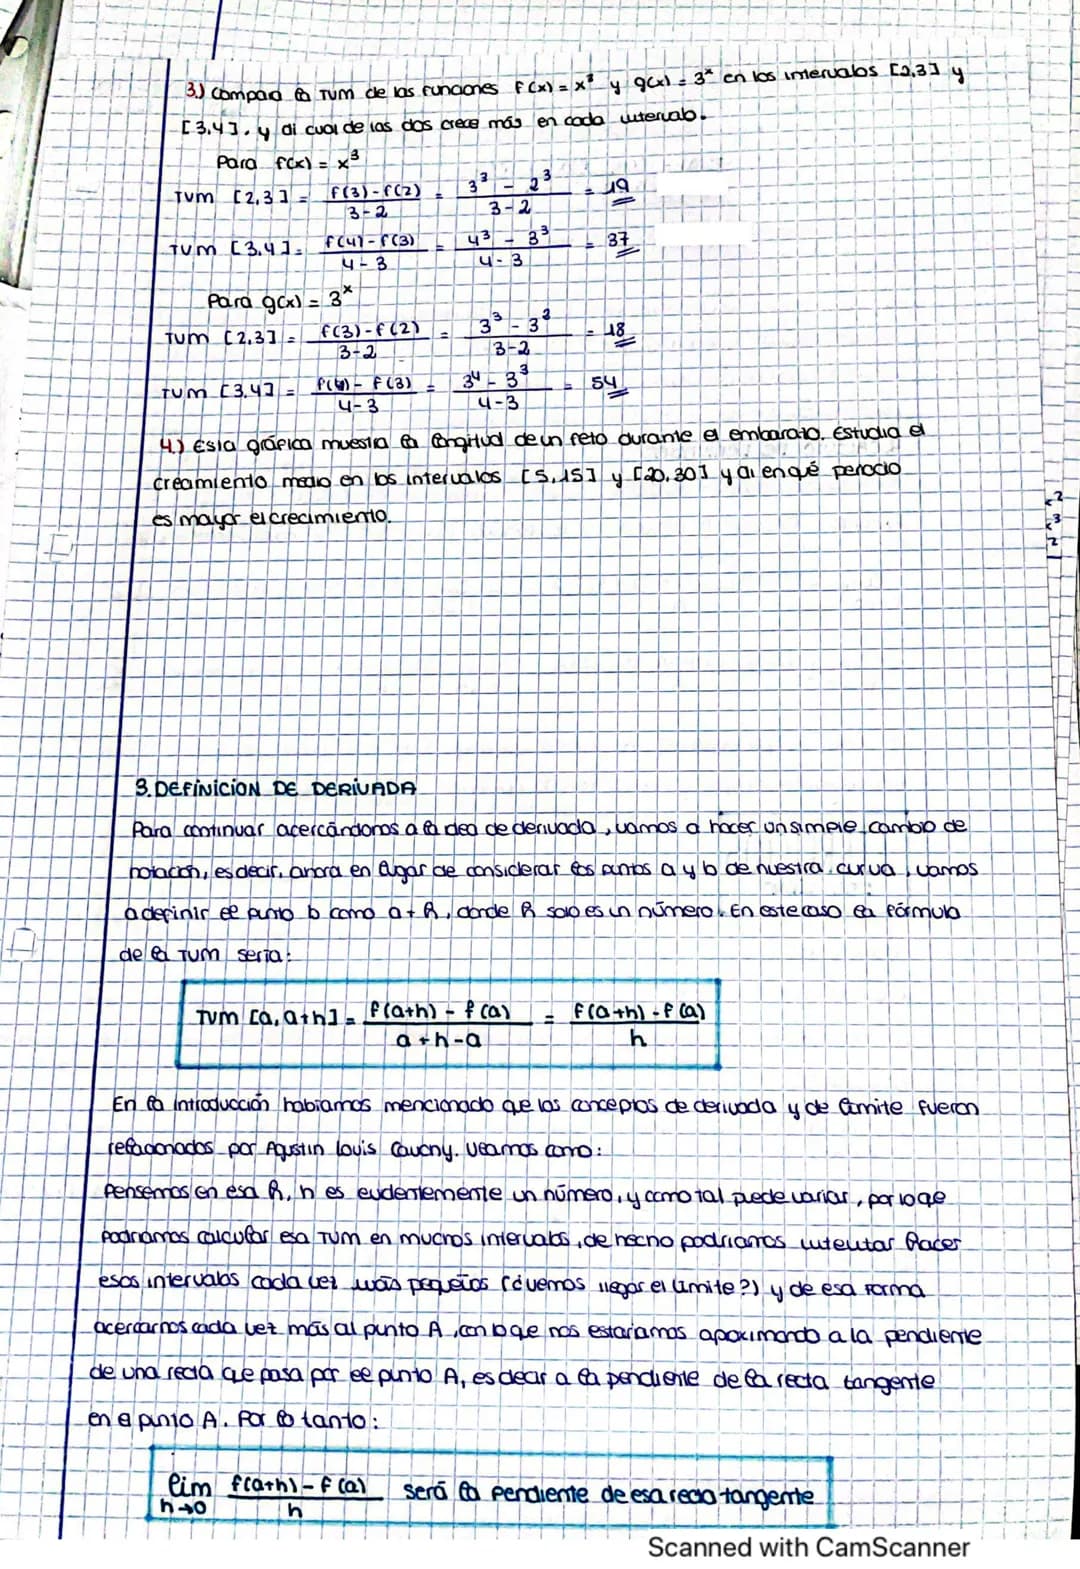 3.) Compara la TVM de las funciones f(x) = x³ y g(x) = 3ˣ en los intervalos [2,3] y
[3,4], y di cual de las dos crece más en cada intervalo.
Para f(x) = x³
TVM [2,3] = f(3)-f(2) / 3-2 = 3³ - 2³ / 3-2 = 19
TVM [3,4] = f(4)-f(3) / 4-3 = 4³ - 3³ / 4-3 = 37
Para g(x) = 3ˣ
TVM [2,3] = f(3)-f(2) / 3-2 = 3³ - 3² / 3-2 = 18
TVM [3,4] = f(4)-f(3) / 4-3 = 3⁴ - 3³ / 4-3 = 54
4.) Esta gráfica muestra la longitud de un feto durante el embarazo. Estudia el
creamiento medio en los intervalos [5,15] y [20,30] y di en qué periodo
es mayor el crecimiento.
3. DEFINICION DE DERIVADA
Para continuar acercándonos a la idea de derivada, vamos a hacer un simple cambio de
notación, es decir, ahora en lugar de considerar los puntos a y b de nuestra curva, vamos
a definir el punto b como a + h, donde h solo es un número. En este caso la fórmula
de la TVM sería:
TVM [a, a+h] = f(a+h) - f(a) / a+h-a = f(a+h) - f(a) / h
En la introducción habiamos mencionado que los conceptos de derivada y de límite fueron
relacionados por Agustin Louis Cauchy. Veamos como:
Pensemos en esa h, h es evidentemente un número, y como tal puede variar, por lo que
podríamos calcular esa TVM en muchos intervalos, de hecho podríamos intentar hacer
esos intervalos cada vez más pequeños (¿vemos llegar el límite?) y de esa forma
acercarnos cada vez más al punto A, con lo que nos estaríamos aproximando a la pendiente
de una recta que pasa por el punto A, es decir a la pendiente de la recta tangente
en el punto A. Por lo tanto:
lim h→0 f(a+h) - f(a) / h será la pendiente de esa recta tangente
Scanned with CamScanner